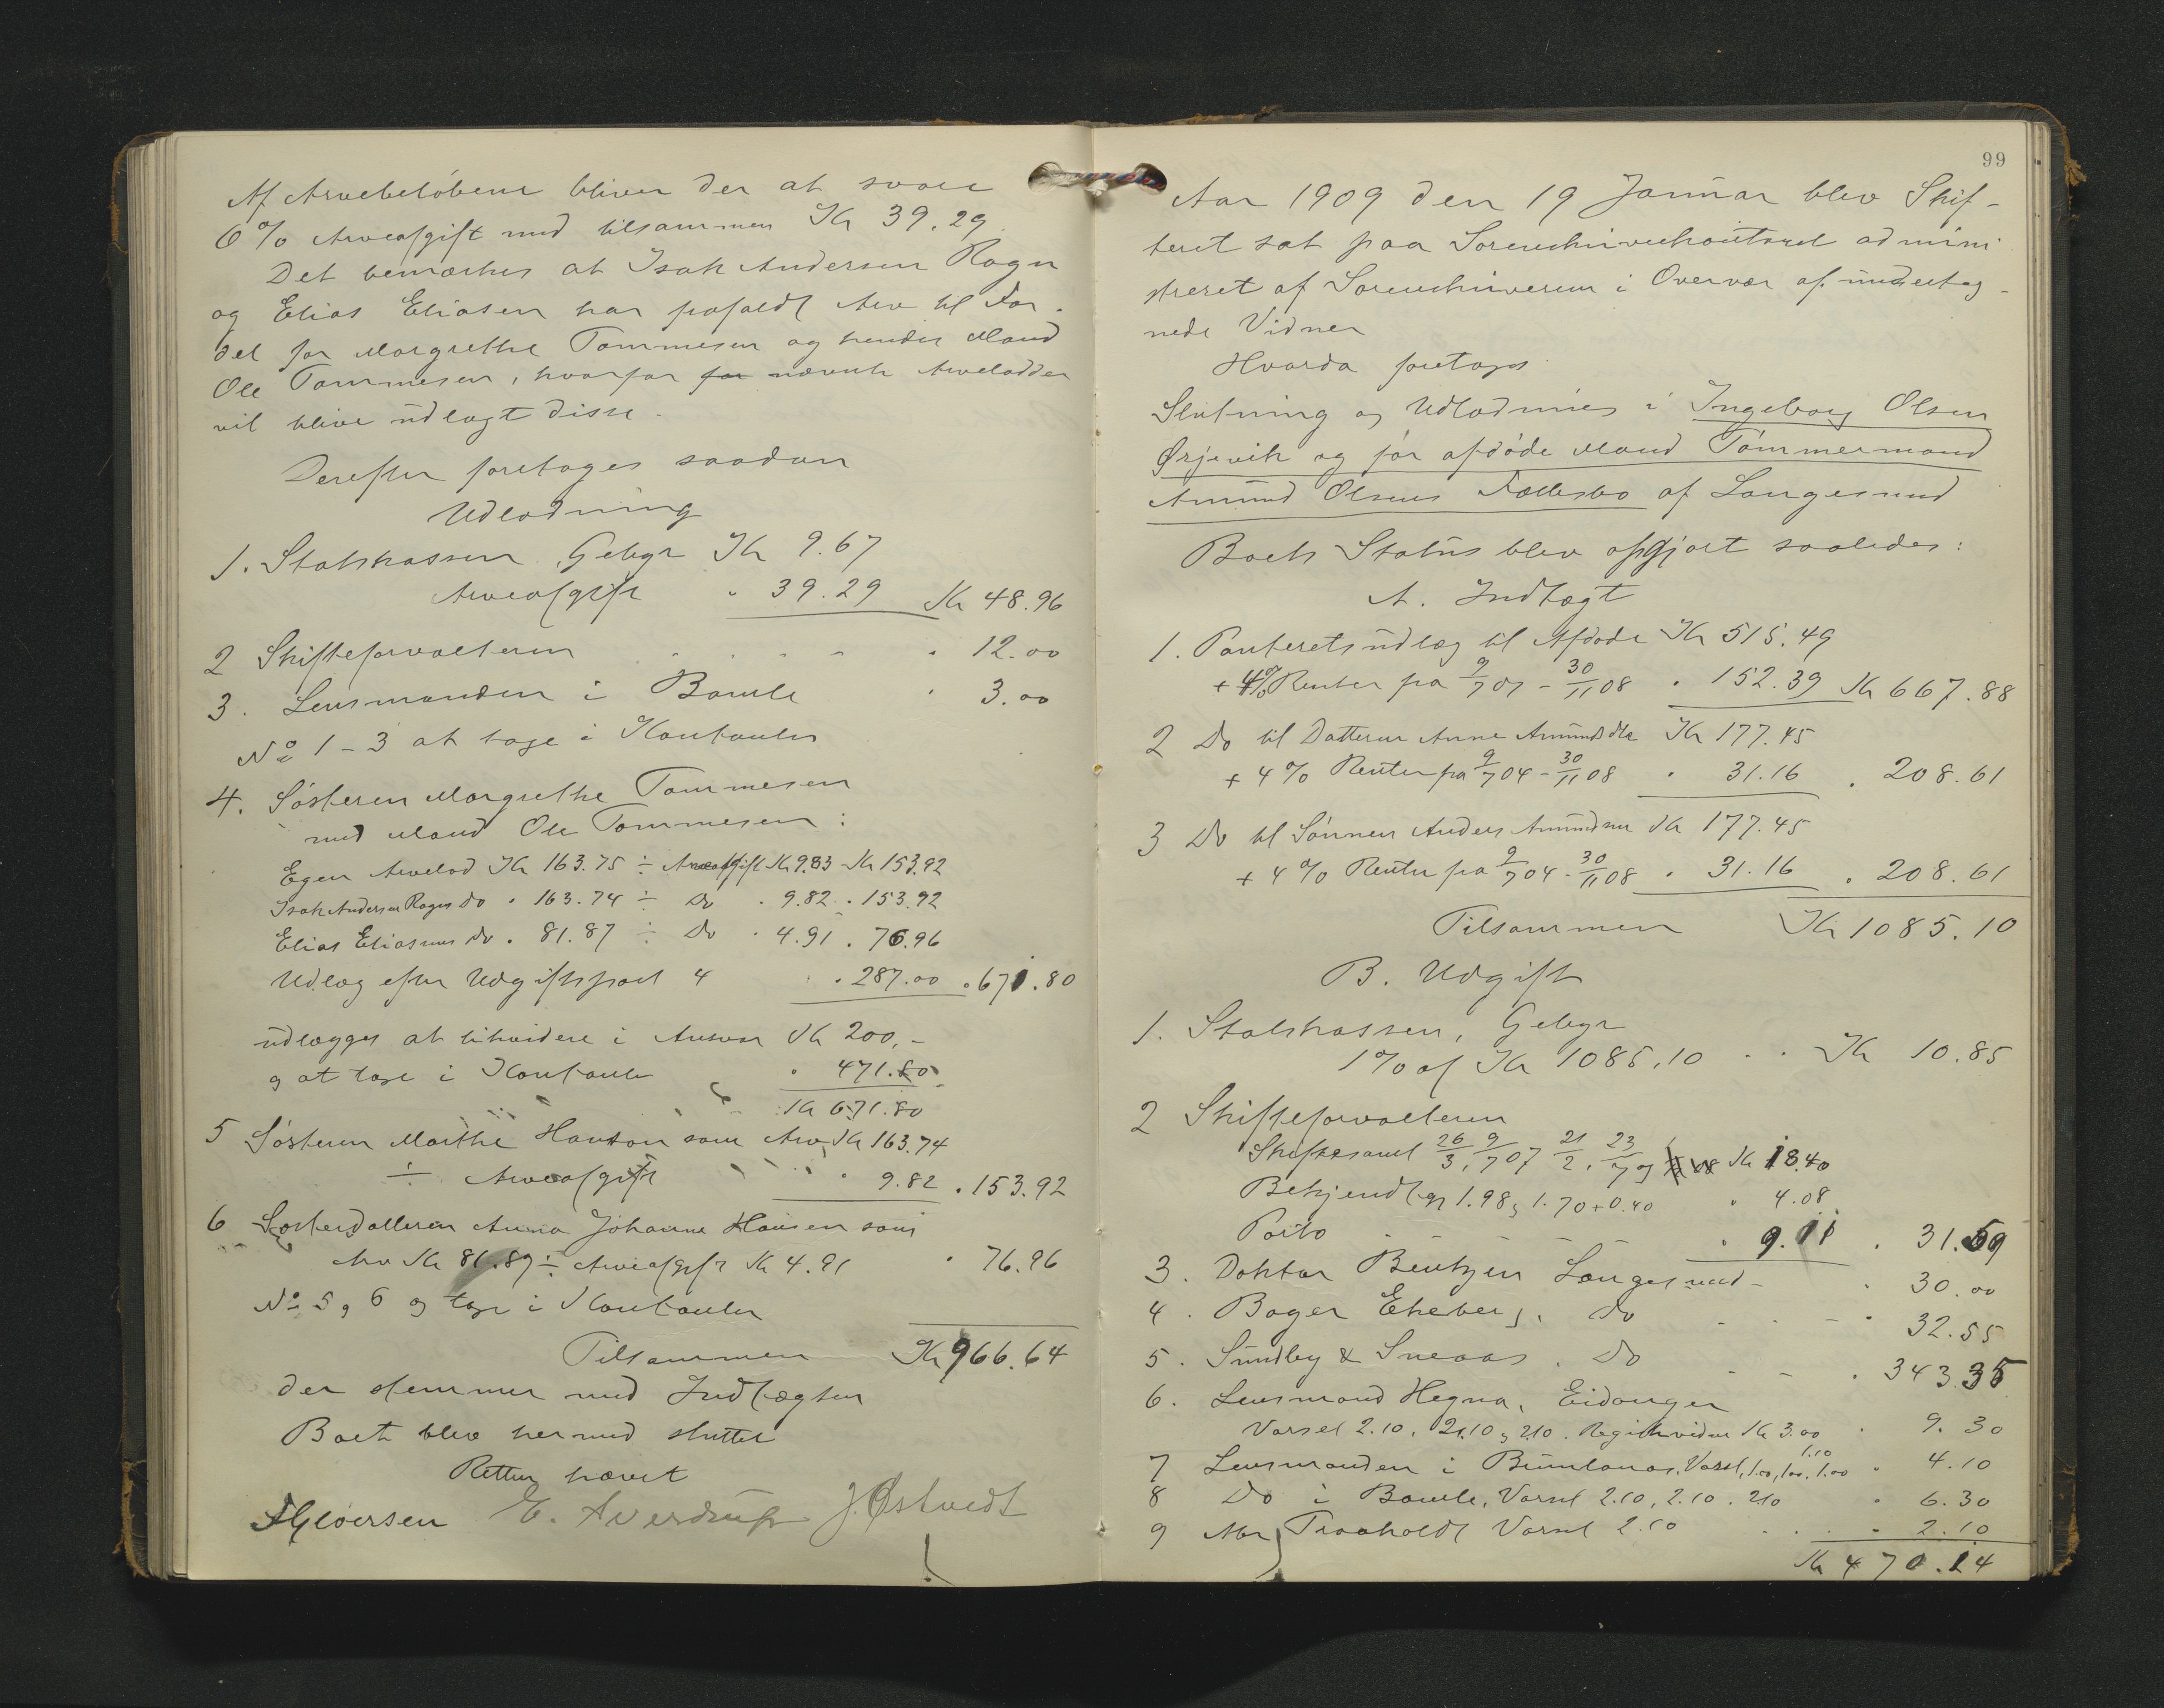 Af Arvebeløbene bliver der at svare
6 % Arveafgift med tilsammen Kr 39.29
Det bemærkes at Isak Andersen Rogn
og Elias Eliasen har frafaldt Arv til For-
del for Margrethe Tommesen og hendes Mand
Ole Tommesen, hvorfor for nævnte Arvelodder
vil blive udlagt disse.
Derefter foretages saadan
Udlodning
1. Statskassen, Gebyr Kr 9.67
Arveafgift " 39.29 Kr 48.96
2 Skifteforvalteren " 12.00
3. Lensmanden i Bamle " 3.00
No 1-3 at tage i Kontanter
4. Søsteren Margrethe Tommesen
med Mand Ole Tommesen:
Egen Arvelod Kr 163.75 ÷ Arveafgift Kr 9.83 - Kr 153.92
Isak Andersen Rogns Do " 163.74 ÷ Do " 9.82 " 153.92
Elias Eliasens Do " 81.87 ÷ Do " 4.91 " 76.96
Udlæg efter Udgiftspost 4 " 287.00 " 671.80
udlægges at likvidere i Ansvar Kr 200,-
og at tage i Kontanter " 471.80
Kr 671.80
5 Søsteren Marthe Hanson som Arv Kr 163.74
÷ Arveafgift " 9.82 " 153.92
6 Søsterdatteren Anna Johanne Hansen som
Arv Kr 81.87 ÷ Arveafgift Kr 4.91 " 76.96
No 5 og 6 og tage i Kontanter
Tilsammen Kr 966.64
der stemmer med Indtægten
Boet blev hermed sluttet
Retten hævet
E. Averdrup J. Østvedt
99
Aar 1909 den 19 Januar blev Skif-
teret sat paa Sorenskriverkontoret admini
streret af Sorenskriveren i Overvær af underteg-
nede Vidner
Hvorda foretoges
Slutning og Udlodning i Ingeborg Olsen
Ørjevik og før afdøde Mand Tømmermand
Amund Olsens Fællesbo af Langesund
Boets Status blev opgjort saaledes:
A. Indtægt
1. Panteretsudlæg til Afdøde Kr 515.49
+ 4% Renter fra 9/7 01 - 30/11 08 " 152.39 Kr 667.88
2 Do til Datteren Anne Amundsdtr Kr 177.45
+ 4 % Renter fra 9/7 04 - 30/11 08 " 31.16 " 208.61
3 Do til Sønnen Anders Amundsen Kr 177.45
+ 4 % Renter fra 9/7 04 - 30/11 08 " 31.16 " 208.61
Tilsammen Kr 1085.10
B. Udgift
1. Statskassen, Gebyr
1 % af Kr 1085.10 Kr 10.85
2 Skifteforvalteren
Skiftesaml 26/3, 9/7 07 21/2, 23/7 Kr 18.40
Bekjendtg 1.98, 1.70 + 0.40 " 4.08
Porto " 9.11 " 31.59
3. Doktor Bentzen Langesund " 30.00
4. Bager Ekeberg, Do " 32.55
5. Sundby & Sneaas, Do " 343.35
6. Lensmand Hegna, Eidanger
Varsel 2.10, 2.10, 2.10. Regisvidne Kr 3.00 " 9.30
7 Lensmanden i Brunlanæs, Varsl, 1.00, 1.00, 1.00 1.10 " 4.10
8 Do i Bamle, Varsel 2.10, 2.10, 2.10 " 6.30
9 Traaholdt Varsel 2.10 " 2.10
Kr 470.14